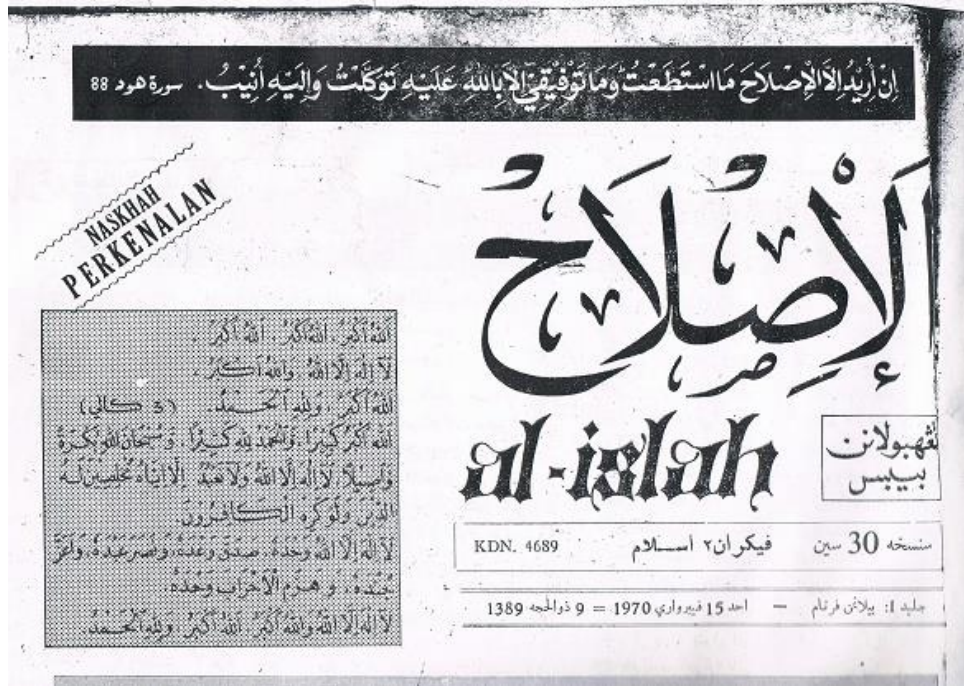 إِنْ أُرِيْدُ اِلَّا الْاِصْلَاحَ مَا اسْتَطَعْتُ وَمَا تَوْفِيْقِيْ اِلَّا بِاللّٰهِ عَلَيْهِ تَوَكَّلْتُ وَاِلَيْهِ أُنِيْبُ. سورة هود 88
NASKHAH
PERKENALAN
اَلْإِصْلَاحْ
al-islah
بيبس
سنسخه 30 سين
فيكيران٢ اسلام
KDN. 4689
جليد 1: بيلاڠن فرتام — احد 15 فيبرواري 1970 = 9 ذوالحجه 1389
اَللهُ اَكْبَرُ، اَللهُ اَكْبَرُ، اَللهُ اَكْبَرُ.
لَا اِلٰهَ اِلَّا اللهُ وَاللهُ اَكْبَرُ.
اَللهُ اَكْبَرُ، وَلِلّٰهِ الْحَمْدُ. (3 كالي)
اَللهُ اَكْبَرُ كَبِيْرًا، وَالْحَمْدُ لِلّٰهِ كَثِيْرًا، وَسُبْحَانَ اللهِ بُكْرَةً
وَاَصِيْلًا، لَا اِلٰهَ اِلَّا اللهُ وَلَا نَعْبُدُ اِلَّا اِيَّاهُ مُخْلِصِيْنَ لَهُ
الدِّيْنَ وَلَوْ كَرِهَ الْكَافِرُوْنَ.
لَا اِلٰهَ اِلَّا اللهُ وَحْدَهُ، صَدَقَ وَعْدَهُ، وَنَصَرَ عَبْدَهُ، وَاَعَزَّ
جُنْدَهُ، وَهَزَمَ الْاَحْزَابَ وَحْدَهُ.
لَا اِلٰهَ اِلَّا اللهُ وَاللهُ اَكْبَرُ، اَللهُ اَكْبَرُ، وَلِلّٰهِ الْحَمْدُ.